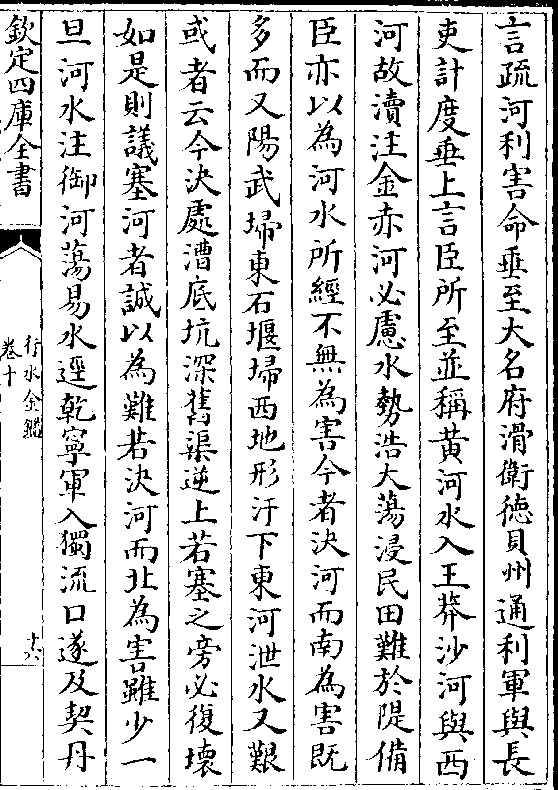 言疏河利害命垂至大名府滑衛德貝州通利軍與長
吏計度垂上言臣所至並稱黄河水入王莽沙河與西
河故瀆注金赤河必慮水勢浩大蕩浸民田難於隄備
臣亦以為河水所經不無為害今者決河而南為害既
多而又陽武埽東石堰埽西地形汙下東河泄水又艱
或者云今決處漕底坑深舊渠逆上若塞之旁必復壞
如是則議塞河者誠以為難若決河而北為害雖少一
旦河水注御河蕩易水逕乾寧軍入獨流口遂及契丹
欽定四庫全書
行水金鑑
卷十
十六